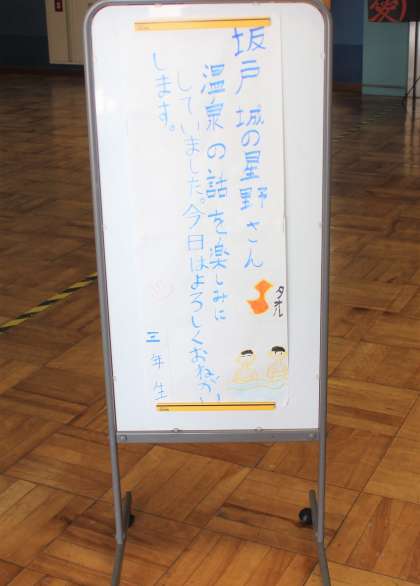 坂戸城の星野さん
温泉の話を楽しみに
していました。今日はよろしくおねがい
します。
三年生
タオル